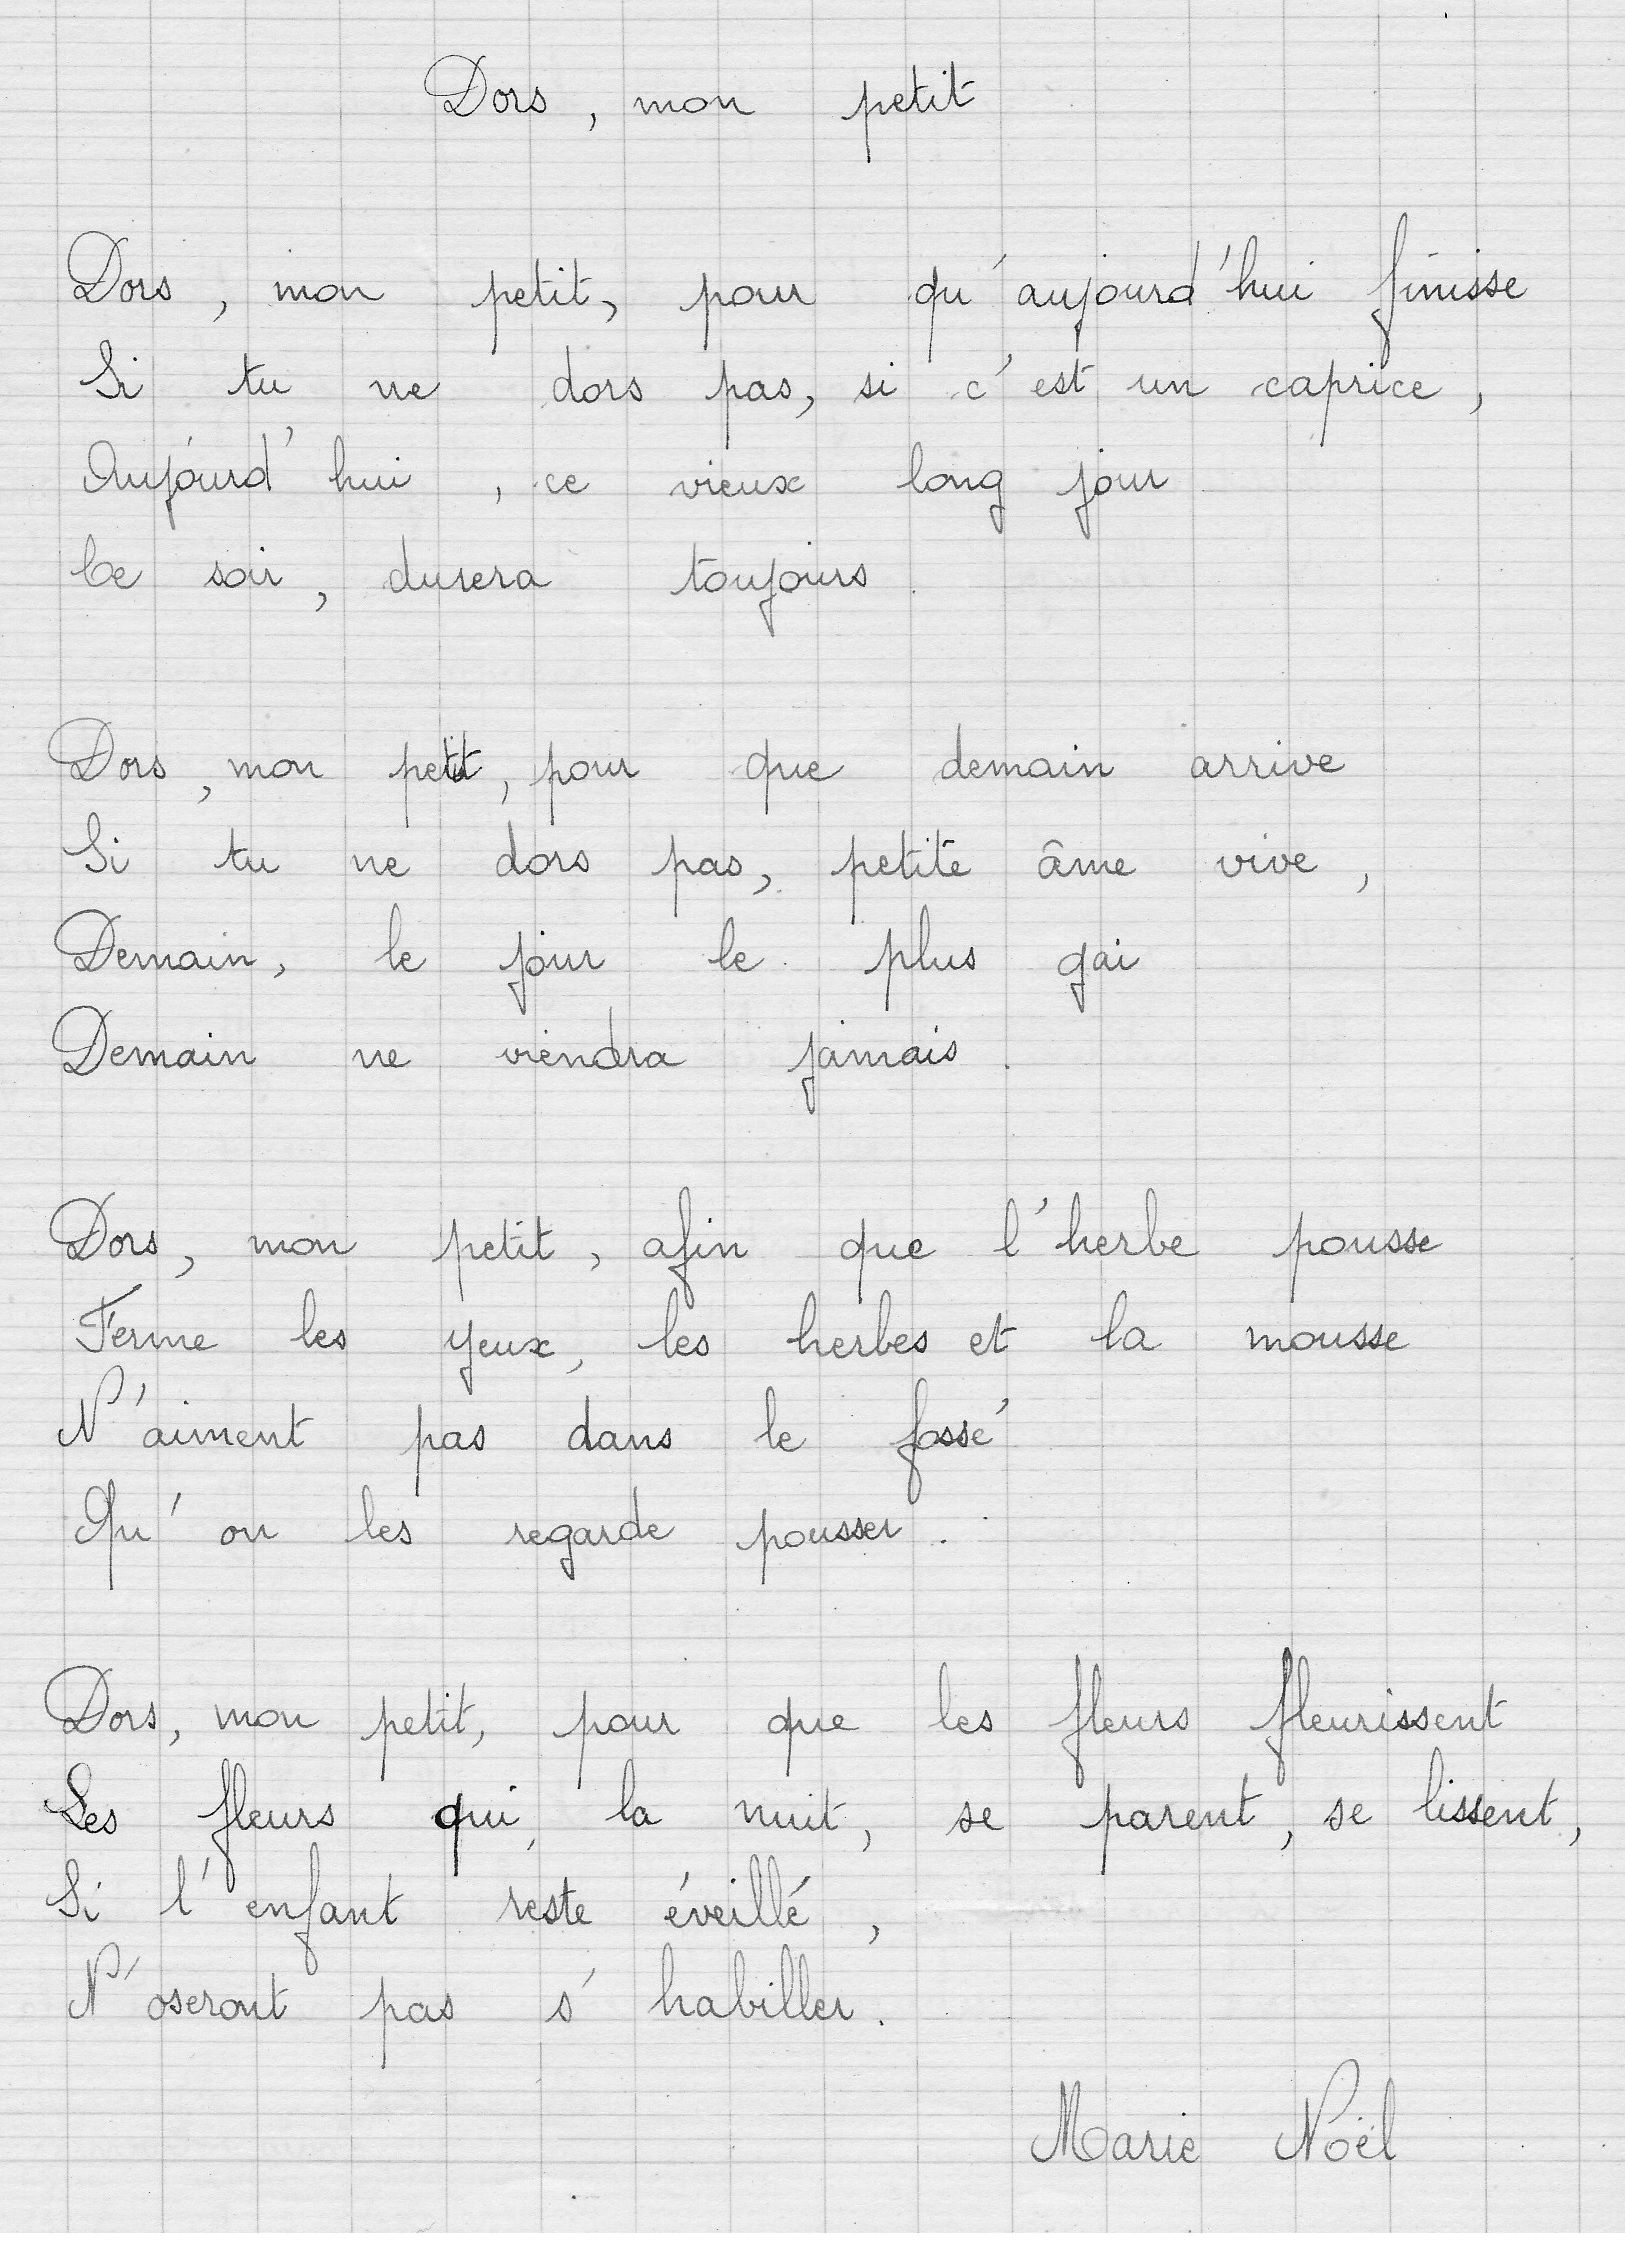 Dors, mon petit
Dors, mon petit, pour qu'aujourd'hui finisse
Si tu ne dors pas, si c'est un caprice,
Aujourd'hui, ce vieux long jour
Ce soir, durera toujours.
Dors, mon petit, pour que demain arrive
Si tu ne dors pas, petite âme vive,
Demain, le jour le plus gai
Demain ne viendra jamais.
Dors, mon petit, afin que l'herbe pousse
Ferme les yeux, les herbes et la mousse
N'aiment pas dans le fossé
Qu'on les regarde pousser.
Dors, mon petit, pour que les fleurs fleurissent
Les fleurs qui, la nuit, se parent, se lissent,
Si l'enfant reste éveillé,
N'oseront pas s'habiller.
Marie Noël